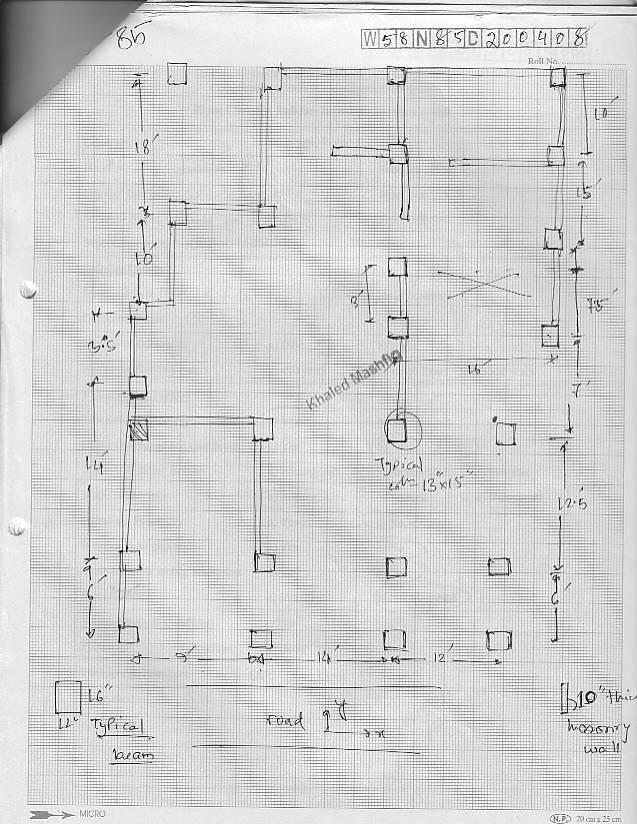 85
W58N85D200408
Roll No.
10'
18'
15'
10'
3.5'
3'
7.5'
16'
7'
Khaled Mashfiq
14'
Typical
col = 13"x15"
12.5'
6'
6'
9'
14'
12'
16"
12"
Typical
beam
road
y
x
10" thick
masonry
wall
MICRO
N.P. 20 cm x 25 cm